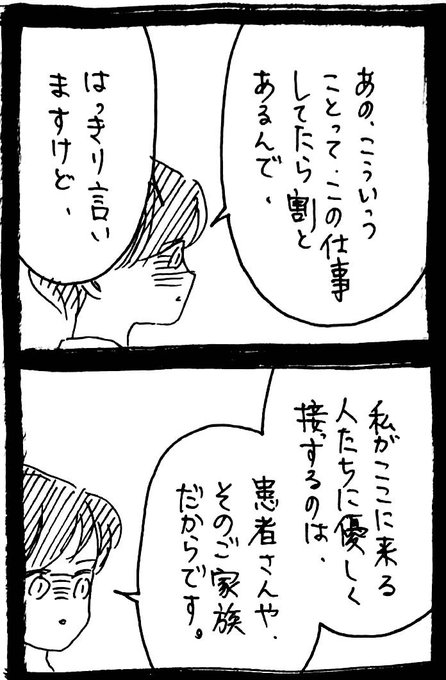 あの、こういっつ
ことって、この仕事
してたら割と
あるんで、
はっきり言い
ますけど、
私がここに来る
人たちに優しく
接っするのは、
患者さんや、
そのご家族
だからです。